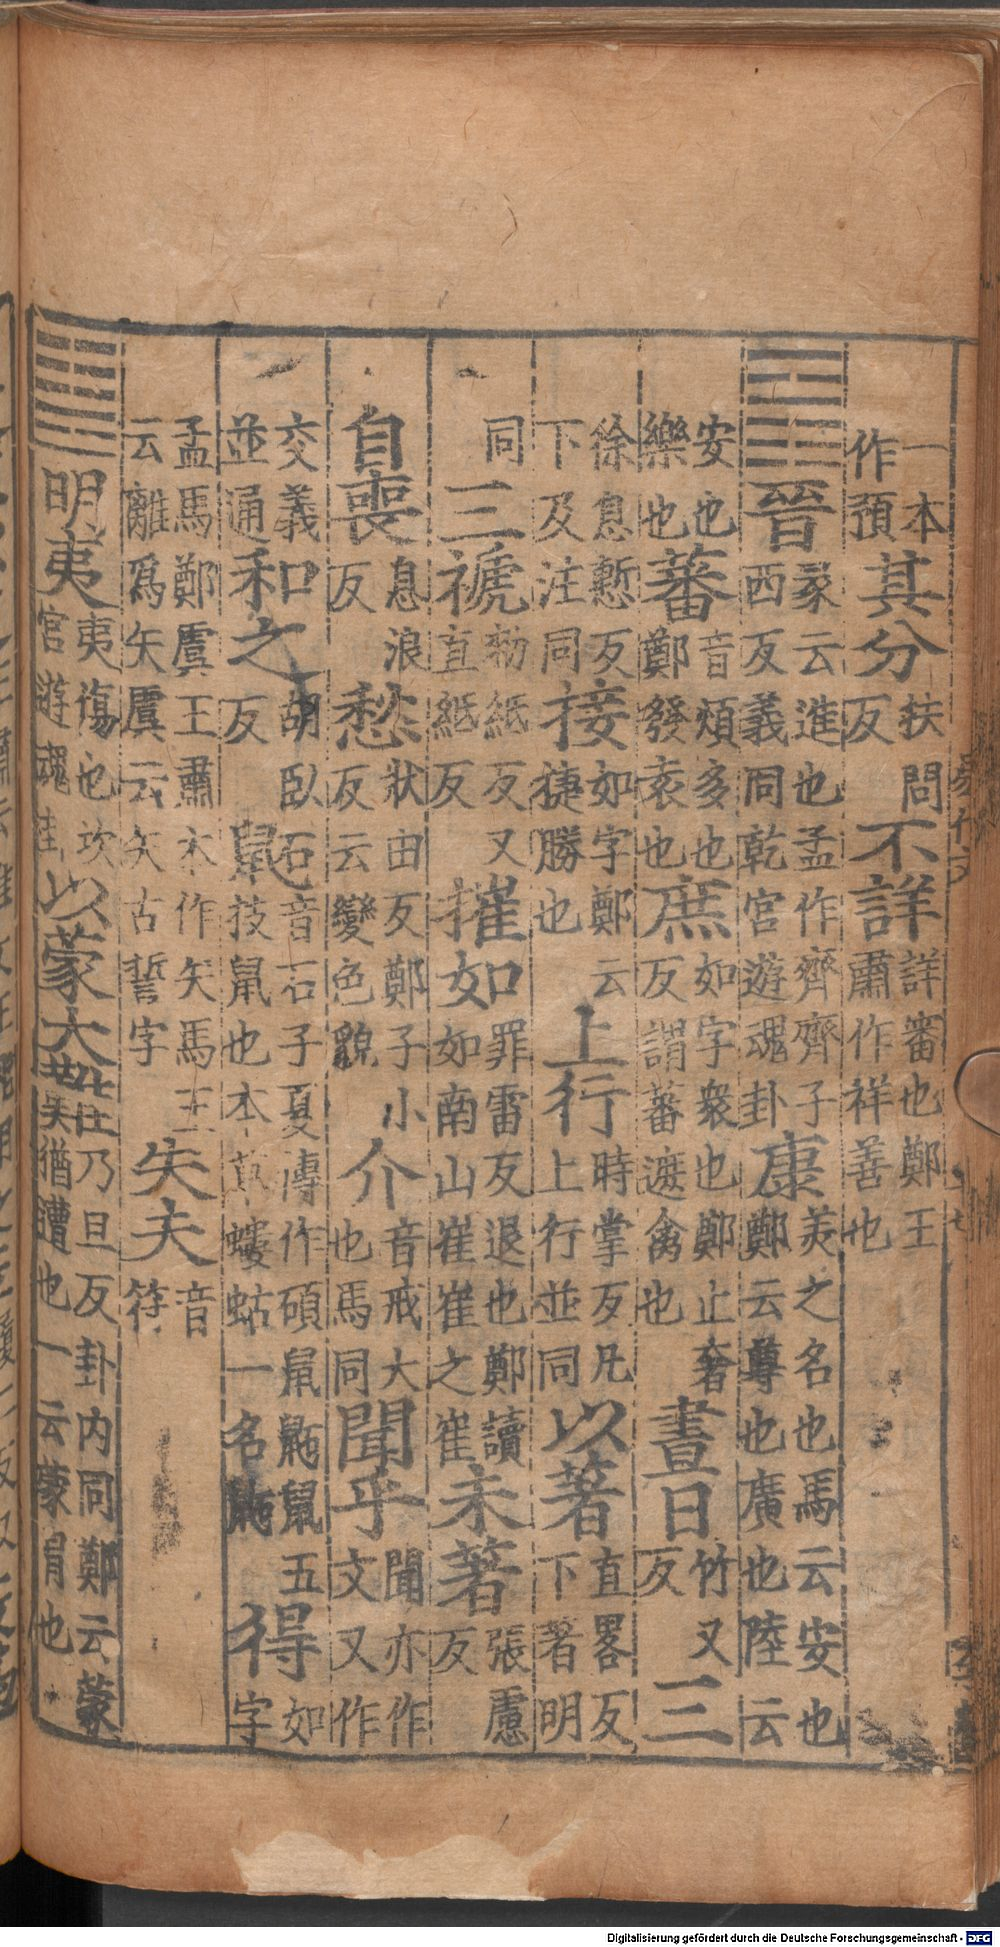 一本作預其分扶問反不詳詳審也鄭王肅作祥善也
晉彖云進也孟作齊齊子西反義同乾宮遊魂卦康美之名也馬云安也鄭云尊也廣也陸云
安也樂也蕃音煩多也鄭發袁反庶如字衆也鄭止奢反謂蕃遮禽也晝日竹又反三
徐息慙反下及注同接如字鄭音捷勝也上行時掌反凡上行並同以著直畧反下著明
同三褫勑紙反又直紙反摧如罪雷反退也鄭讀如南山崔崔之崔未著張慮反
自喪息浪反愁狀由反鄭子小反云變色貌介音戒大也馬同聞乎聞亦作文又作
交義並通和之胡臥反鼫石音石子夏傳作碩鼠鼫鼠五技鼠也本草螻蛄一名鼫得如字
孟馬鄭虞王肅本作矢馬王云離爲矢虞云矢古誓字失夫音符
明夷夷傷也坎宮遊魂卦以蒙大難乃旦反卦内同鄭云蒙猶遭也一云蒙冒也
Digitalisierung gefördert durch die Deutsche Forschungsgemeinschaft - DFG